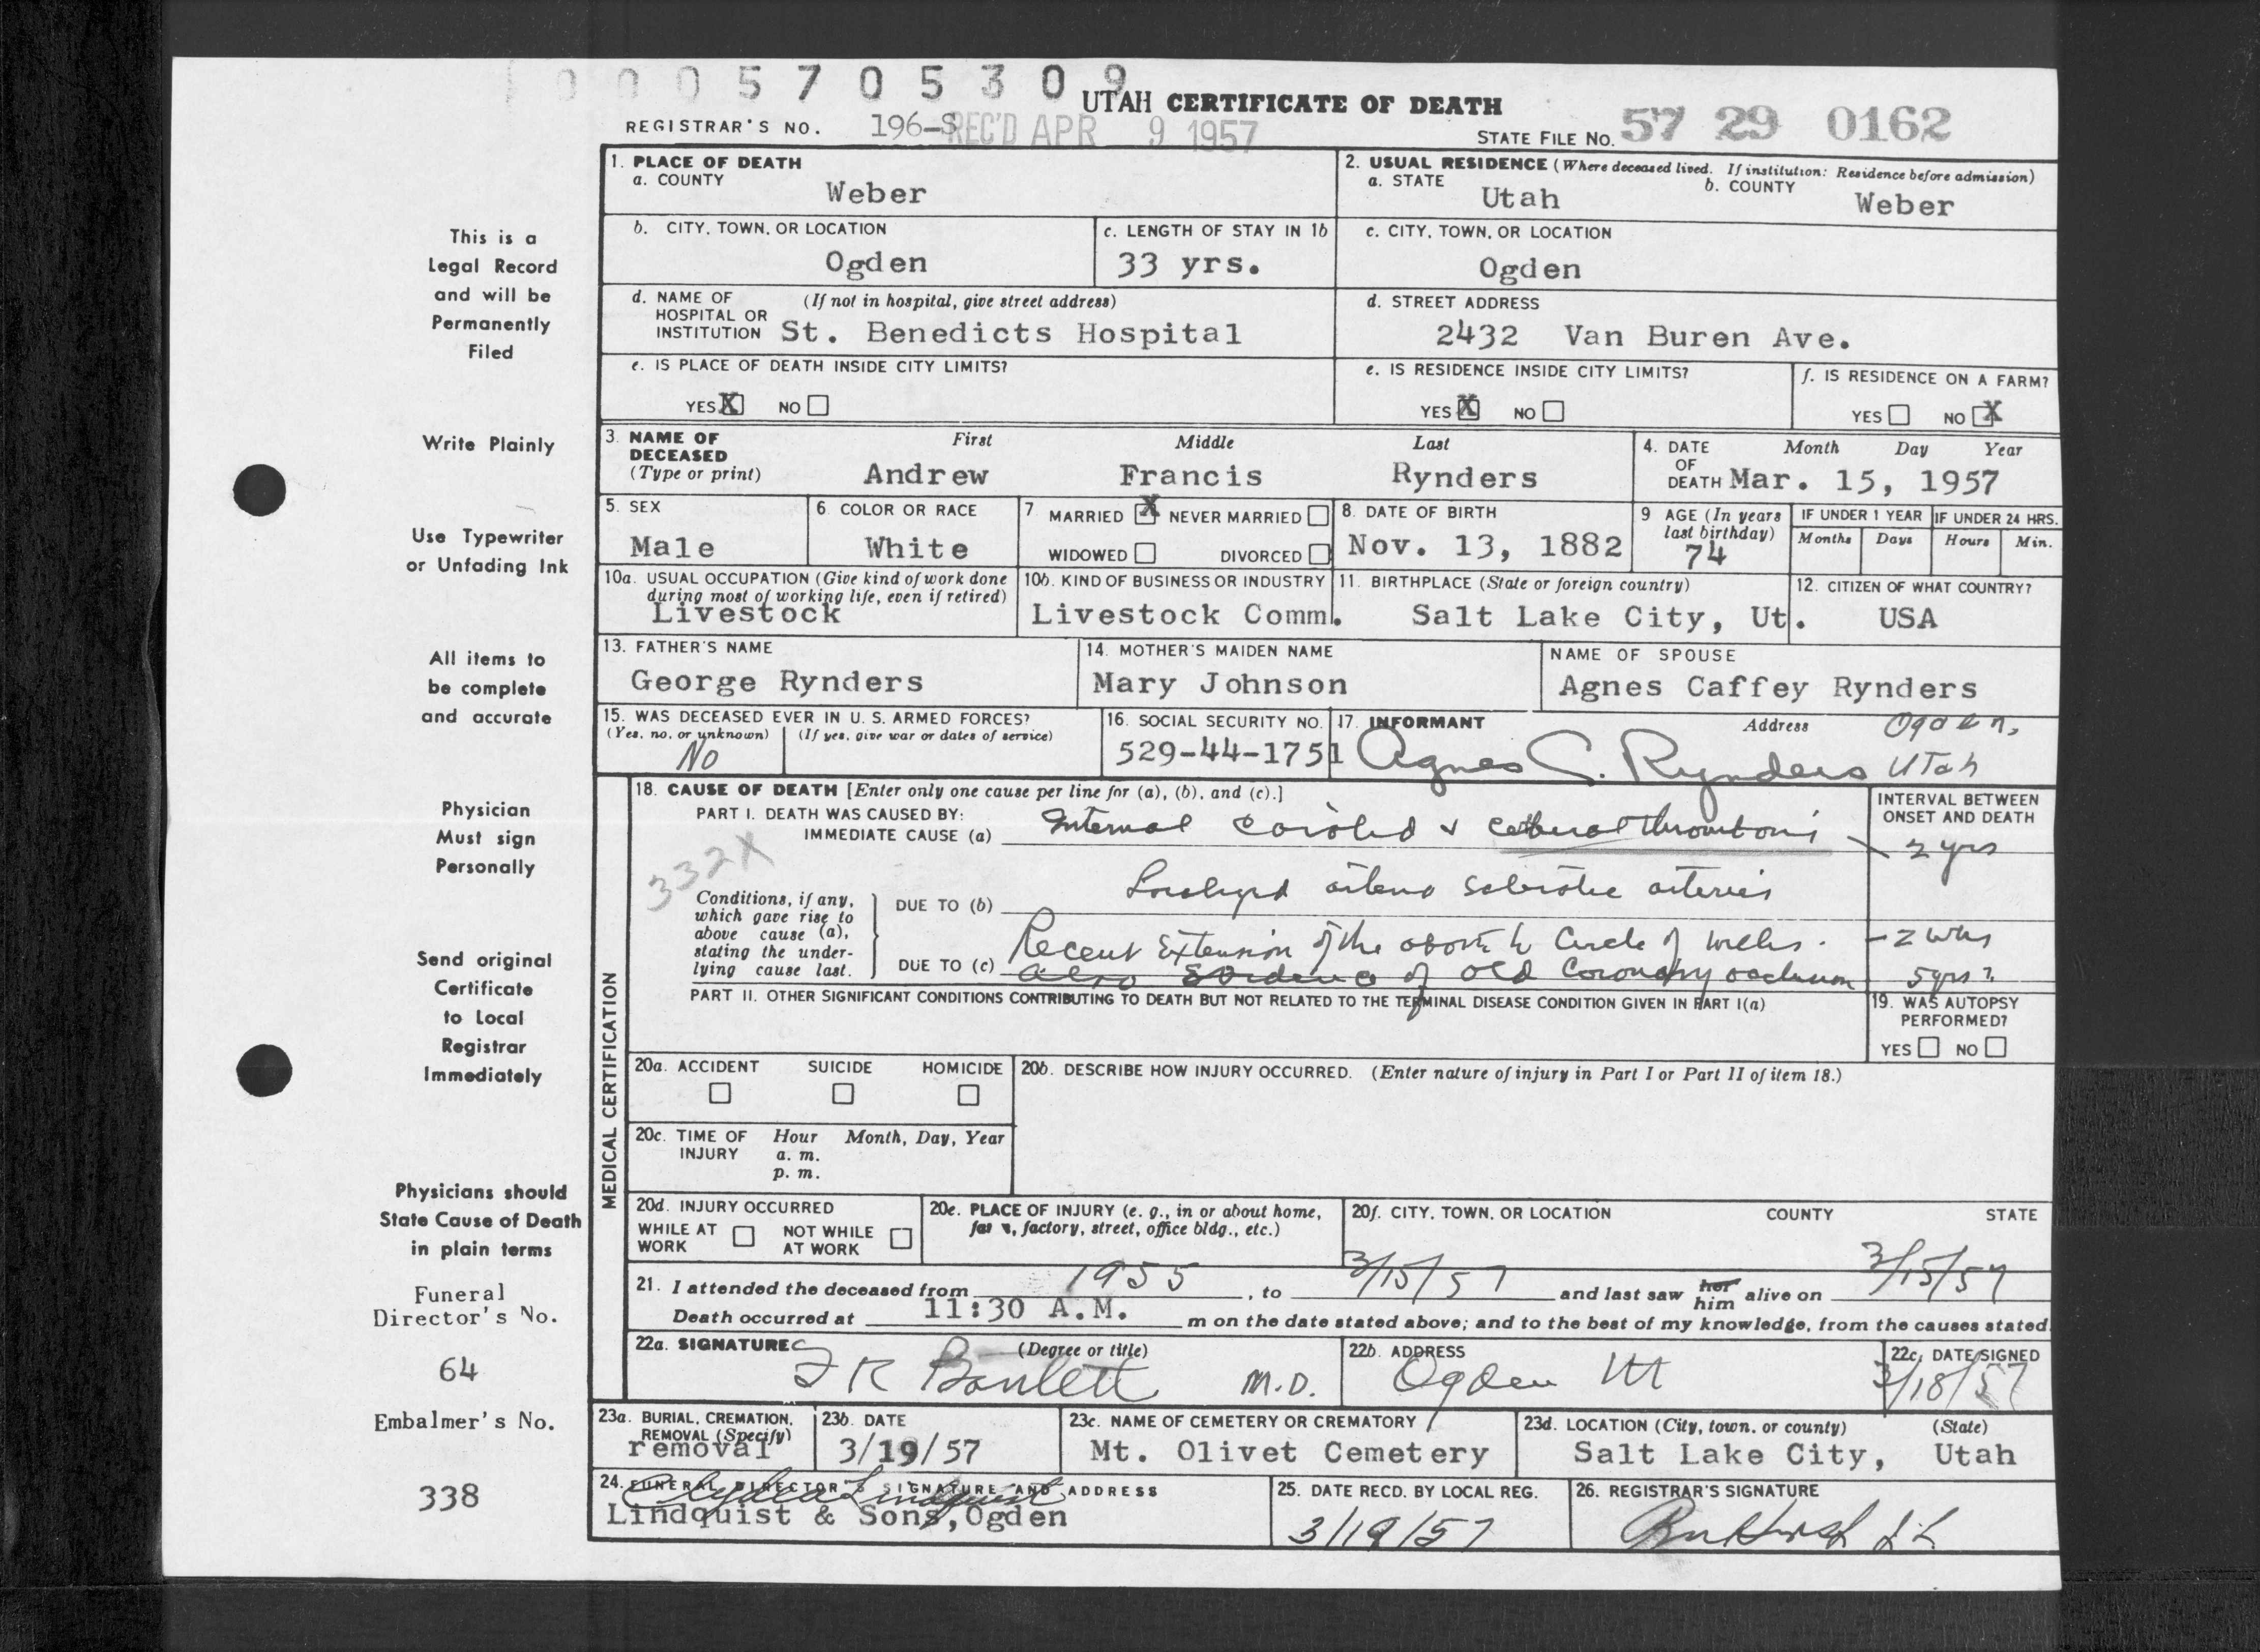 0005705309
UTAH CERTIFICATE OF DEATH
REGISTRAR'S NO. 196-S REC'D APR 9 1957
STATE FILE NO. 57 29 0162
1. PLACE OF DEATH
a. COUNTY
Weber
2. USUAL RESIDENCE (Where deceased lived. If institution: Residence before admission)
a. STATE Utah b. COUNTY Weber
b. CITY, TOWN, OR LOCATION
Ogden
c. LENGTH OF STAY IN 1b
33 yrs.
c. CITY, TOWN, OR LOCATION
Ogden
d. NAME OF HOSPITAL OR INSTITUTION (If not in hospital, give street address)
St. Benedicts Hospital
d. STREET ADDRESS
2432 Van Buren Ave.
e. IS PLACE OF DEATH INSIDE CITY LIMITS?
YES X NO
e. IS RESIDENCE INSIDE CITY LIMITS?
YES X NO
f. IS RESIDENCE ON A FARM?
YES NO X
3. NAME OF DECEASED (Type or print)
First Middle Last
Andrew Francis Rynders
4. DATE OF DEATH Month Day Year
Mar. 15, 1957
5. SEX
Male
6. COLOR OR RACE
White
7 MARRIED X NEVER MARRIED
WIDOWED DIVORCED
8. DATE OF BIRTH
Nov. 13, 1882
9 AGE (In years last birthday)
74
IF UNDER 1 YEAR
Months Days
IF UNDER 24 HRS.
Hours Min.
10a. USUAL OCCUPATION (Give kind of work done during most of working life, even if retired)
Livestock
10b. KIND OF BUSINESS OR INDUSTRY
Livestock Comm.
11. BIRTHPLACE (State or foreign country)
Salt Lake City, Ut.
12. CITIZEN OF WHAT COUNTRY?
USA
13. FATHER'S NAME
George Rynders
14. MOTHER'S MAIDEN NAME
Mary Johnson
NAME OF SPOUSE
Agnes Caffey Rynders
15. WAS DECEASED EVER IN U.S. ARMED FORCES?
(Yes, no, or unknown) (If yes, give war or dates of service)
No
16. SOCIAL SECURITY NO.
529-44-1751
17. INFORMANT Address
Agnes C. Rynders Ogden, Utah
18. CAUSE OF DEATH [Enter only one cause per line for (a), (b), and (c).]
INTERVAL BETWEEN ONSET AND DEATH
PART I. DEATH WAS CAUSED BY:
IMMEDIATE CAUSE (a) Internal carotid & cerebral thrombosis 2 yrs
332X
Conditions, if any, which gave rise to above cause (a), stating the underlying cause last.
DUE TO (b) sclerotic arteries
Recent Extension of the above to Circle of Willis. - 2 wks
DUE TO (c) also evidence of old Coronary occlusion 5 yrs?
PART II. OTHER SIGNIFICANT CONDITIONS CONTRIBUTING TO DEATH BUT NOT RELATED TO THE TERMINAL DISEASE CONDITION GIVEN IN PART I(a)
19. WAS AUTOPSY PERFORMED?
YES NO
MEDICAL CERTIFICATION
20a. ACCIDENT SUICIDE HOMICIDE
20b. DESCRIBE HOW INJURY OCCURRED. (Enter nature of injury in Part I or Part II of item 18.)
20c. TIME OF INJURY Hour Month, Day, Year
a. m.
p. m.
20d. INJURY OCCURRED
WHILE AT WORK NOT WHILE AT WORK
20e. PLACE OF INJURY (e. g., in or about home, farm, factory, street, office bldg., etc.)
20f. CITY, TOWN, OR LOCATION COUNTY STATE
21. I attended the deceased from 1955, to 3/15/57 and last saw her him alive on 3/15/57
Death occurred at 11:30 A.M. m on the date stated above; and to the best of my knowledge, from the causes stated.
22a. SIGNATURE (Degree or title)
M.D.
22b. ADDRESS
Ogden Ut
22c. DATE SIGNED
3/18/57
23a. BURIAL, CREMATION, REMOVAL (Specify)
removal
23b. DATE
3/19/57
23c. NAME OF CEMETERY OR CREMATORY
Mt. Olivet Cemetery
23d. LOCATION (City, town, or county) (State)
Salt Lake City, Utah
24. FUNERAL DIRECTOR'S SIGNATURE AND ADDRESS
Lindquist & Sons, Ogden
25. DATE RECD. BY LOCAL REG.
3/19/57
26. REGISTRAR'S SIGNATURE
This is a
Legal Record
and will be
Permanently
Filed
Write Plainly
Use Typewriter
or Unfading Ink
All items to
be complete
and accurate
Physician
Must sign
Personally
Send original
Certificate
to Local
Registrar
Immediately
Physicians should
State Cause of Death
in plain terms
Funeral
Director's No.
64
Embalmer's No.
338